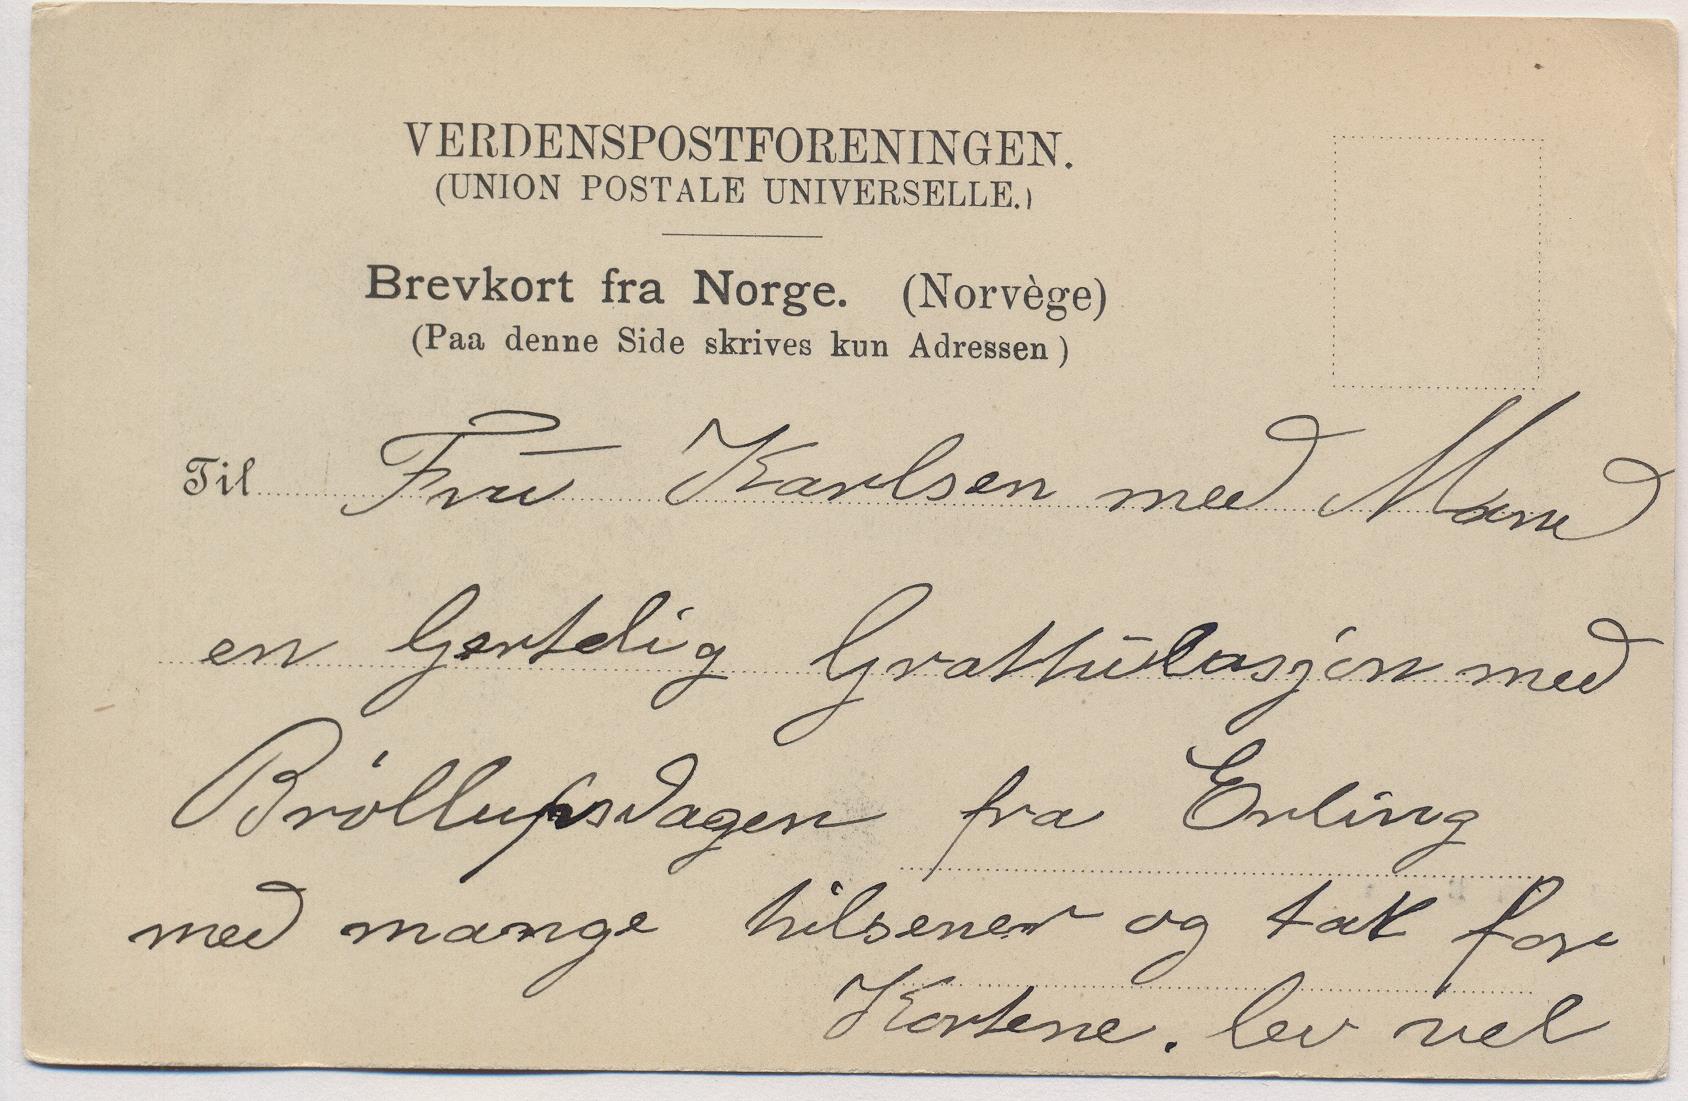 VERDENSPOSTFORENINGEN.
(UNION POSTALE UNIVERSELLE.)
Brevkort fra Norge. (Norvège)
(Paa denne Side skrives kun Adressen)
Til Frū Karlsen med Mand
en hertelig Grattūlasjon med
Bröllupsdagen fra Erling
med mange hilsener og tak for
Kortene. lev vel